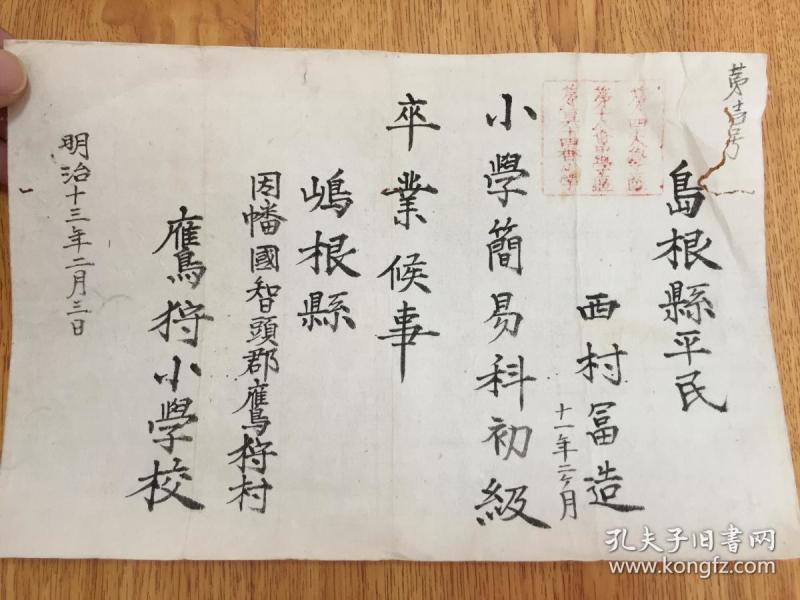 第吉号
島根縣平民
西村冨造
十一年二ケ月
小學簡易科初級
卒業候事
嶋根縣
因幡國智頭郡鷹狩村
鷹狩小學校
明治十三年二月三日
孔夫子旧书网
www.kongfz.com